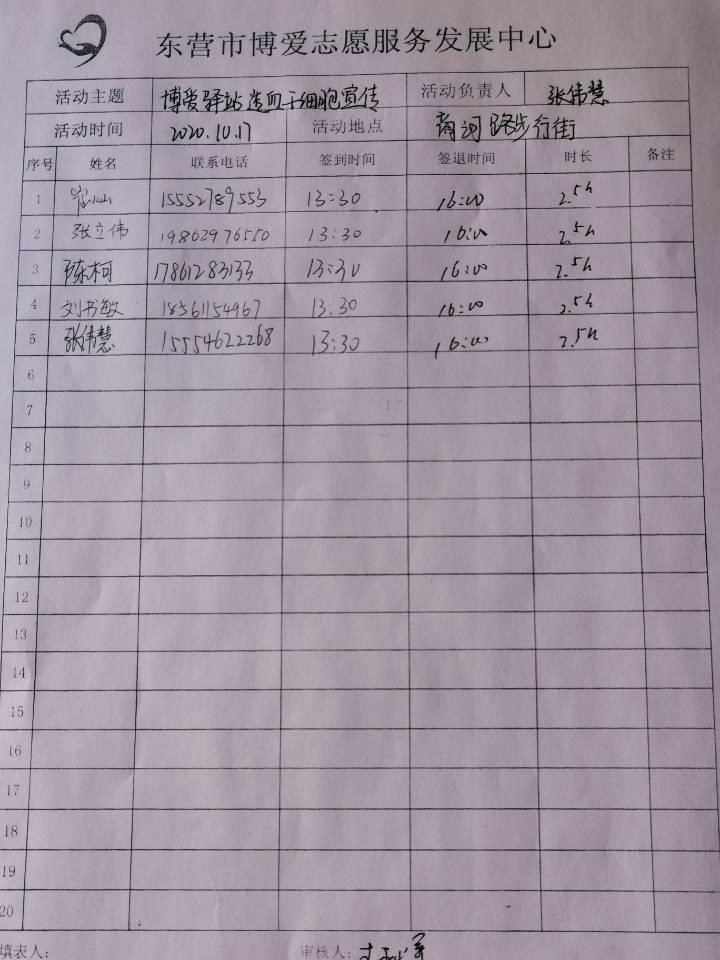 东营市博爱志愿服务发展中心
活动主题 博爱驿站造血干细胞宣传 活动负责人 张伟慧
活动时间 2020.10.17 活动地点 商河路步行街
序号 姓名 联系电话 签到时间 签退时间 时长 备注
1 15552789553 13:30 16:00 2.5h
2 张立伟 19862976550 13:30 16:00 2.5h
3 陈柯 17861283133 13:30 16:00 2.5h
4 刘书敏 18561154967 13:30 16:00 2.5h
5 张伟慧 15554622268 13:30 16:00 2.5h
6
7
8
9
10
11
12
13
14
15
16
17
18
19
20
填表人: 审核人: